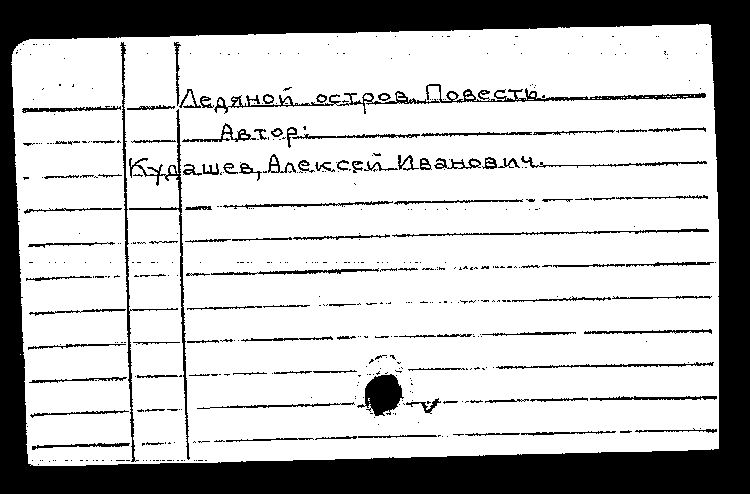 Ледяной остров. Повесть.
Автор:
Кудашев, Алексей Иванович.